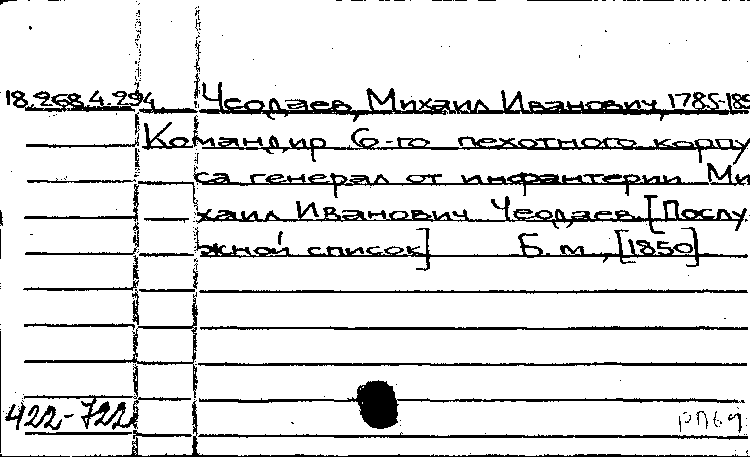 18.268.4.294 Чеодаев, Михаил Иванович, 1785-185
Командир 6-го пехотного корпу
са генерал от инфантерии Ми
хаил Иванович Чеодаев. [Послу
жной список] Б.м., [1850]
422-722